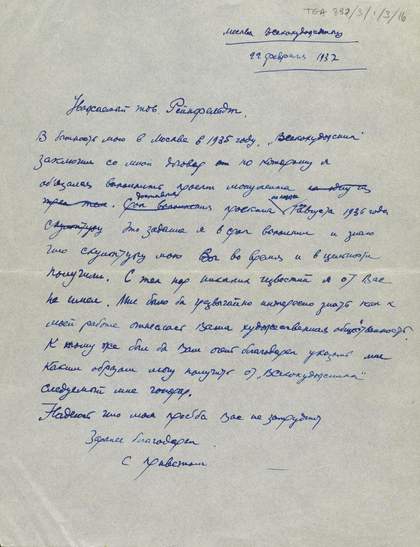 TGA 992/3/1/3/16
Москва Всекохудожнику
22 февраля 1937
Уважаемый тов. Рейнфельдт.
В бытность мою в Москве в 1935 году, "Всекохудожник"
заключил со мной договор по которому я
обязался выполнить проект монумента
Срок проэкта 1 Августа 1936 года
Скульптуру Это задание я в срок выполнил и знаю
что скульптуру мою Вы во время и в целости
получили. С тех пор никаких известий я от Вас
не имел. Мне было бы чрезвычайно интересно знать как к
моей работе относится Ваша художественная общественность.
К тому же был бы Вам очень благодарен указать мне
каким образом могу получить от "Всекохудожника"
следуемый мне гонорар.
Надеюсь что моя просьба Вас не затруднит
Заранее благодарен
С приветом